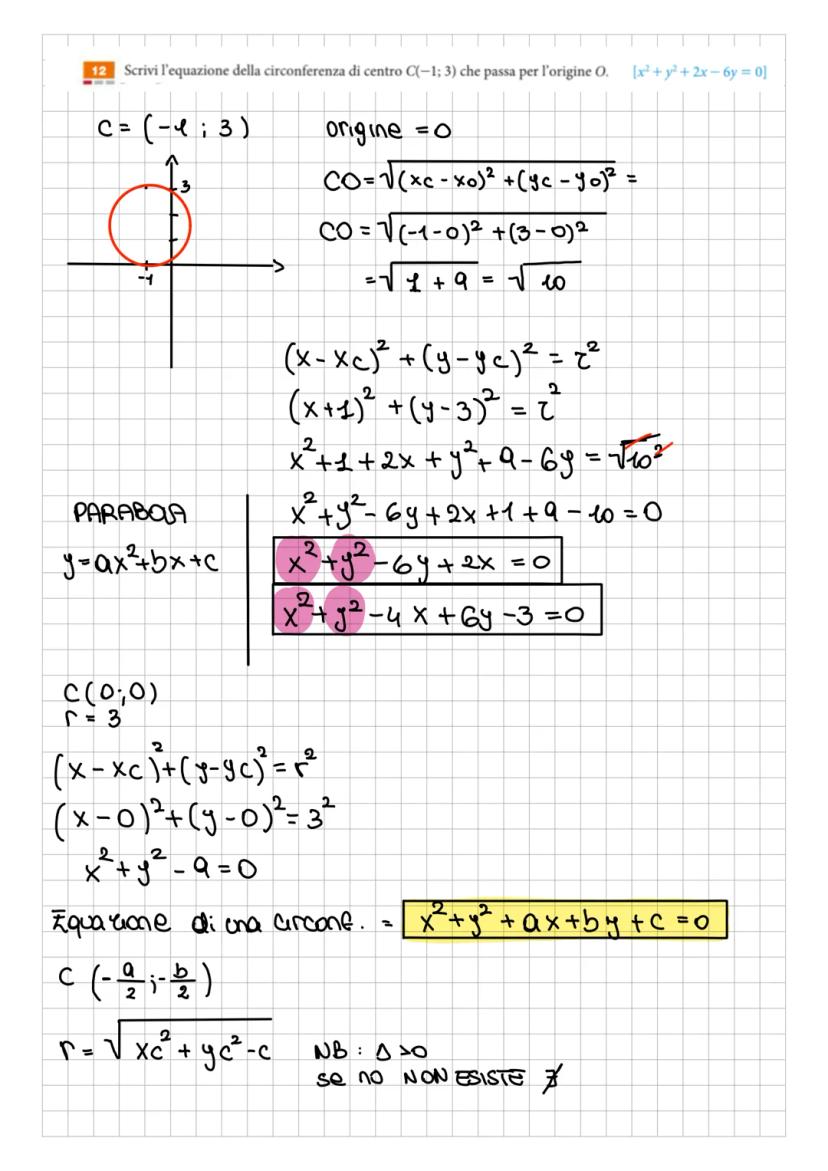 12 Scrivi l'equazione della circonferenza di centro C(−1; 3) che passa per l'origine O. [x² + y² + 2x − 6y = 0]
C = (-1 ; 3)
origine = 0
3
-1
CO = √(xc - xo)² + (yc - yo)² =
CO = √(-1-0)² + (3-0)²
= √1 + 9 = √10
(x - xc)² + (y - yc)² = r²
(x+1)² + (y-3)² = r²
x² + 1 + 2x + y² + 9 - 6y = √10²
x² + y² - 6y + 2x + 1 + 9 - 10 = 0
x² + y² - 6y + 2x = 0
x² + y² - 4x + 6y - 3 = 0
PARABOLA
y = ax² + bx + c
C(0;0)
r = 3
(x - xc)² + (y - yc)² = r²
(x - 0)² + (y - 0)² = 3²
x² + y² - 9 = 0
Equazione di una circonf. = x² + y² + ax + by + c = 0
C (-a/2 ; -b/2)
r = √xc² + yc² - c
NB : Δ >0
se no NON ESISTE ∄